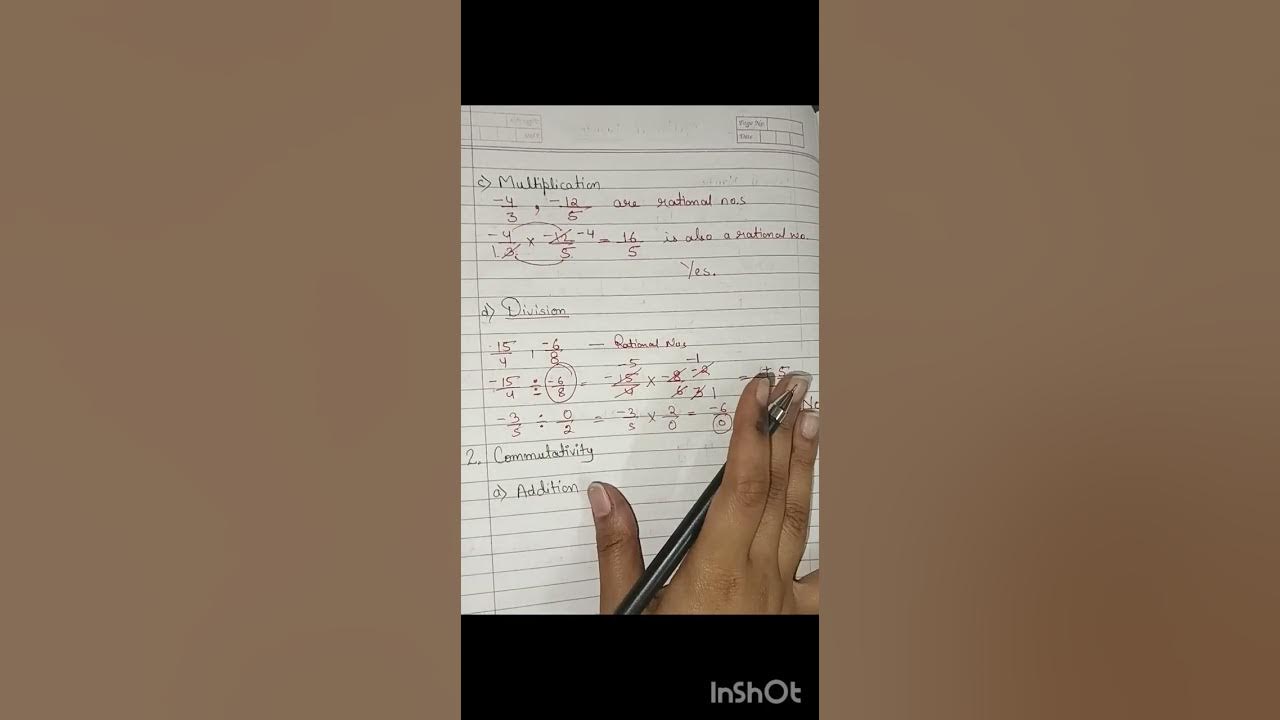 Page No.
Date
c) Multiplication
-4/3 , -12/5 are rational nos
-4/1 3 × -12 -4/5 = 16/5 is also a rational no.
Yes.
d) Division
-15/4 , -6/8 — Rational Nos
-5 -1
-15/4 ÷ -6/8 = -15/4 × -8 -2/6 3 1 = + 5
-3/5 ÷ 0/2 = -3/5 × 2/0 = -6/0 No
2. Commutativity
a) Addition
InShOt